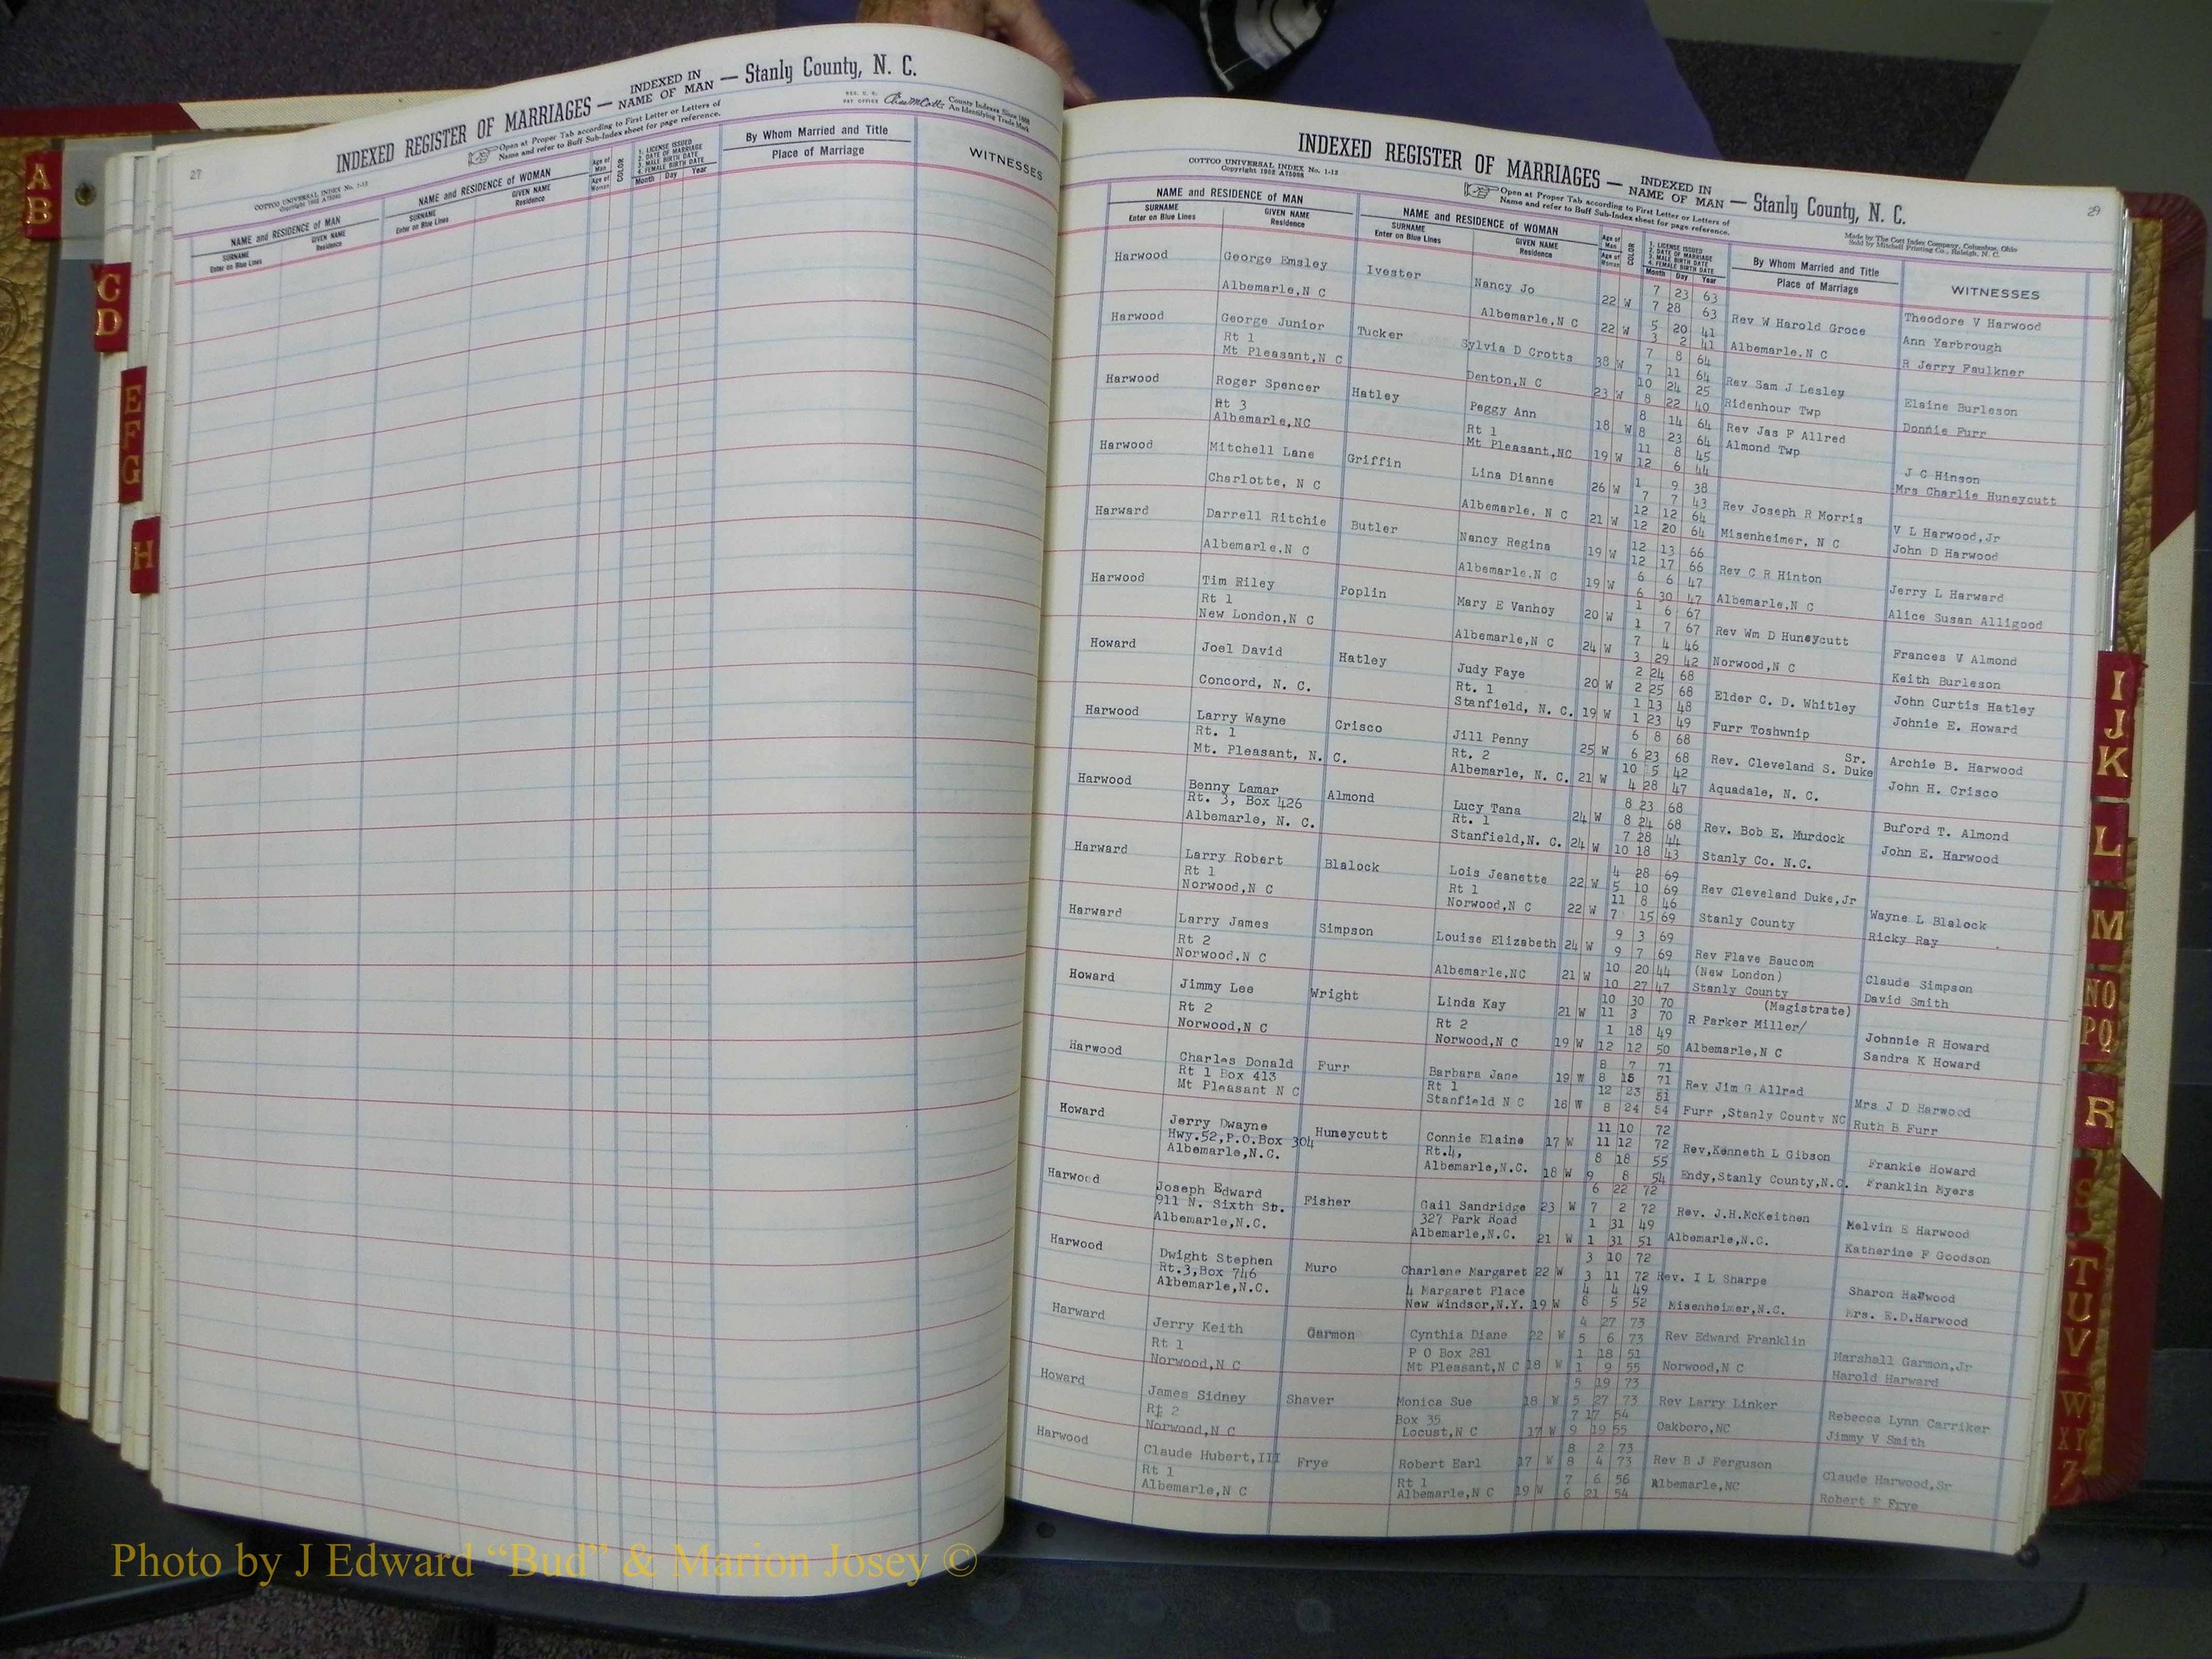 27
INDEXED REGISTER OF MARRIAGES — INDEXED IN NAME OF MAN — Stanly County, N. C.
COTTCO UNIVERSAL INDEX No. 1-12
Open at Proper Tab according to First Letter or Letters of
Name and refer to Buff Sub-Index sheet for page reference.
County Indexes Since 1888
An Identifying Trade Mark
NAME and RESIDENCE of MAN
SURNAME
Enter on Blue Lines
GIVEN NAME
Residence
NAME and RESIDENCE OF WOMAN
SURNAME
Enter on Blue Lines
GIVEN NAME
Residence
Age of Man
Age of Woman
COLOR
1. LICENSE ISSUED
2. DATE OF MARRIAGE
3. MALE BIRTH DATE
4. FEMALE BIRTH DATE
Month Day Year
By Whom Married and Title
Place of Marriage
WITNESSES
INDEXED REGISTER OF MARRIAGES — INDEXED IN NAME OF MAN — Stanly County, N. C.
29
COTTCO UNIVERSAL INDEX No. 1-12
Open at Proper Tab according to First Letter or Letters of
Name and refer to Buff Sub-Index sheet for page reference.
Made by The Cott Index Company, Columbus, Ohio
Sold by Mitchell Printing Co., Raleigh, N. C.
NAME and RESIDENCE OF MAN
SURNAME
Enter on Blue Lines
GIVEN NAME
Residence
NAME and RESIDENCE OF WOMAN
SURNAME
Enter on Blue Lines
GIVEN NAME
Residence
Age of Man
Age of Woman
COLOR
1. LICENSE ISSUED
2. DATE OF MARRIAGE
3. MALE BIRTH DATE
4. FEMALE BIRTH DATE
Month Day Year
By Whom Married and Title
Place of Marriage
WITNESSES
Harwood George Emsley Ivester Nancy Jo 22 W 7 23 63
7 28 63 Rev W Harold Groce Theodore V Harwood
Albemarle,N C Albemarle,N C 22 W 5 20 41 Ann Yarbrough
3 2 41 Albemarle.N C R Jerry Faulkner
Harwood George Junior Tucker Sylvia D Crotts 38 W 7 8 64
Rt 1 7 11 64 Rev Sam J Lesley Elaine Burleson
Mt Pleasant,N C Denton,N C 23 W 10 24 25
8 22 40 Ridenhour Twp Donnie Furr
Harwood Roger Spencer Hatley Peggy Ann 18 W 8 14 64 Rev Jas F Allred
Rt 3 Rt 1 8 23 64 Almond Twp J C Hinson
Albemarle,NC Mt Pleasant,NC 19 W 11 8 45 Mrs Charlie Huneycutt
12 6 44
Harwood Mitchell Lane Griffin Lina Dianne 26 W 1 9 38
7 7 43 Rev Joseph R Morris V L Harwood,Jr
Charlotte, N C Albemarle, N C 21 W 12 12 64
12 20 64 Misenheimer, N C John D Harwood
Harward Darrell Ritchie Butler Nancy Regina 19 W 12 13 66
12 17 66 Rev C R Hinton Jerry L Harward
Albemarle,N C Albemarle.N C 19 W 6 6 47
6 30 47 Albemarle,N C Alice Susan Alligood
Harwood Tim Riley Poplin Mary E Vanhoy 20 W 1 6 67
Rt 1 1 7 67 Rev Wm D Huneycutt Frances V Almond
New London,N C Albemarle,N C 24 W 7 4 46
3 29 42 Norwood,N C Keith Burleson
Howard Joel David Hatley Judy Faye 20 W 2 24 68
Rt. 1 2 25 68 Elder C. D. Whitley John Curtis Hatley
Concord, N. C. Stanfield, N. C. 19 W 1 13 48
1 23 49 Furr Toshwnip Johnie E. Howard
Harwood Larry Wayne Crisco Jill Penny 25 W 6 8 68
Rt. 1 Rt. 2 6 23 68 Rev. Cleveland S. Duke Sr. Archie B. Harwood
Mt. Pleasant, N. C. Albemarle, N. C. 21 W 10 5 42
4 28 47 Aquadale, N. C. John H. Crisco
Harwood Benny Lamar Almond Lucy Tana 24 W 8 23 68
Rt. 3, Box 426 Rt. 1 8 24 68 Rev. Bob E. Murdock Buford T. Almond
Albemarle, N. C. Stanfield,N. C. 24 W 7 28 44
10 18 43 Stanly Co. N.C. John E. Harwood
Harward Larry Robert Blalock Lois Jeanette 22 W 4 28 69
Rt 1 Rt 1 5 10 69 Rev Cleveland Duke,Jr Wayne L Blalock
Norwood,N C Norwood,N C 22 W 11 8 46
7 15 69 Stanly County Ricky Ray
Harward Larry James Simpson Louise Elizabeth 24 W 9 3 69
Rt 2 9 7 69 Rev Flave Baucom
Norwood.N C Albemarle,NC 21 W 10 20 44 (New London) Claude Simpson
10 27 47 Stanly County David Smith
Howard Jimmy Lee Wright Linda Kay 21 W 10 30 70 (Magistrate)
Rt 2 Rt 2 11 3 70 R Parker Miller/ Johnnie R Howard
Norwood,N C Norwood,N C 19 W 1 18 49
12 12 50 Albemarle,N C Sandra K Howard
Harwood Charles Donald Furr Barbara Jane 19 W 8 7 71
Rt 1 Box 413 Rt 1 8 15 71 Rev Jim G Allred
Mt Pleasant N C Stanfield N C 16 W 12 23 51 Mrs J D Harwood
8 24 54 Furr ,Stanly County NC Ruth B Furr
Howard Jerry Dwayne Huneycutt Connie Elaine 17 W 11 10 72
Hwy.52,P.O.Box 304 Rt.4, 11 12 72 Rev,Kenneth L Gibson Frankie Howard
Albemarle,N.C. Albemarle,N.C. 18 W 8 18 55
9 8 54 Endy,Stanly County,N.C. Franklin Myers
Harwood Joseph Edward Fisher Gail Sandridge 23 W 6 22 72
911 N. Sixth St. 327 Park Road 7 2 72 Rev. J.H.McKeithen Melvin E Harwood
Albemarle,N.C. Albemarle,N.C. 21 W 1 31 49
1 31 51 Albemarle,N.C. Katherine F Goodson
Harwood Dwight Stephen Muro Charlene Margaret 22 W 3 10 72
Rt.3,Box 746 4 Margaret Place 3 11 72 Rev. I L Sharpe Sharon Harwood
Albemarle,N.C. New Windsor,N.Y. 19 W 4 4 49
8 5 52 Misenheimer,N.C. Mrs. E.D.Harwood
Harward Jerry Keith Garmon Cynthia Diane 22 W 4 27 73
Rt 1 P O Box 281 5 6 73 Rev Edward Franklin Marshall Garmon,Jr
Norwood,N C Mt Pleasant,N C 18 W 1 18 51
1 9 55 Norwood,N C Harold Harward
Howard James Sidney Shaver Monica Sue 18 W 5 19 73
Rt 2 Box 35 5 27 73 Rev Larry Linker Rebecca Lynn Carriker
Norwood,N C Locust,N C 17 W 7 17 54
9 19 55 Oakboro,NC Jimmy V Smith
Harwood Claude Hubert,III Frye Robert Earl 17 W 8 2 73
Rt 1 Rt 1 8 4 73 Rev B J Ferguson Claude Harwood,Sr
Albemarle,N C Albemarle,N C 19 W 7 6 56
6 21 54 Albemarle,NC Robert E Frye
A
B
C
D
E
F
G
H
I
J
K
L
M
NO
PQ
R
S
T
U
V
W
X Y
Z
Photo by J Edward “Bud” & Marion Josey ©